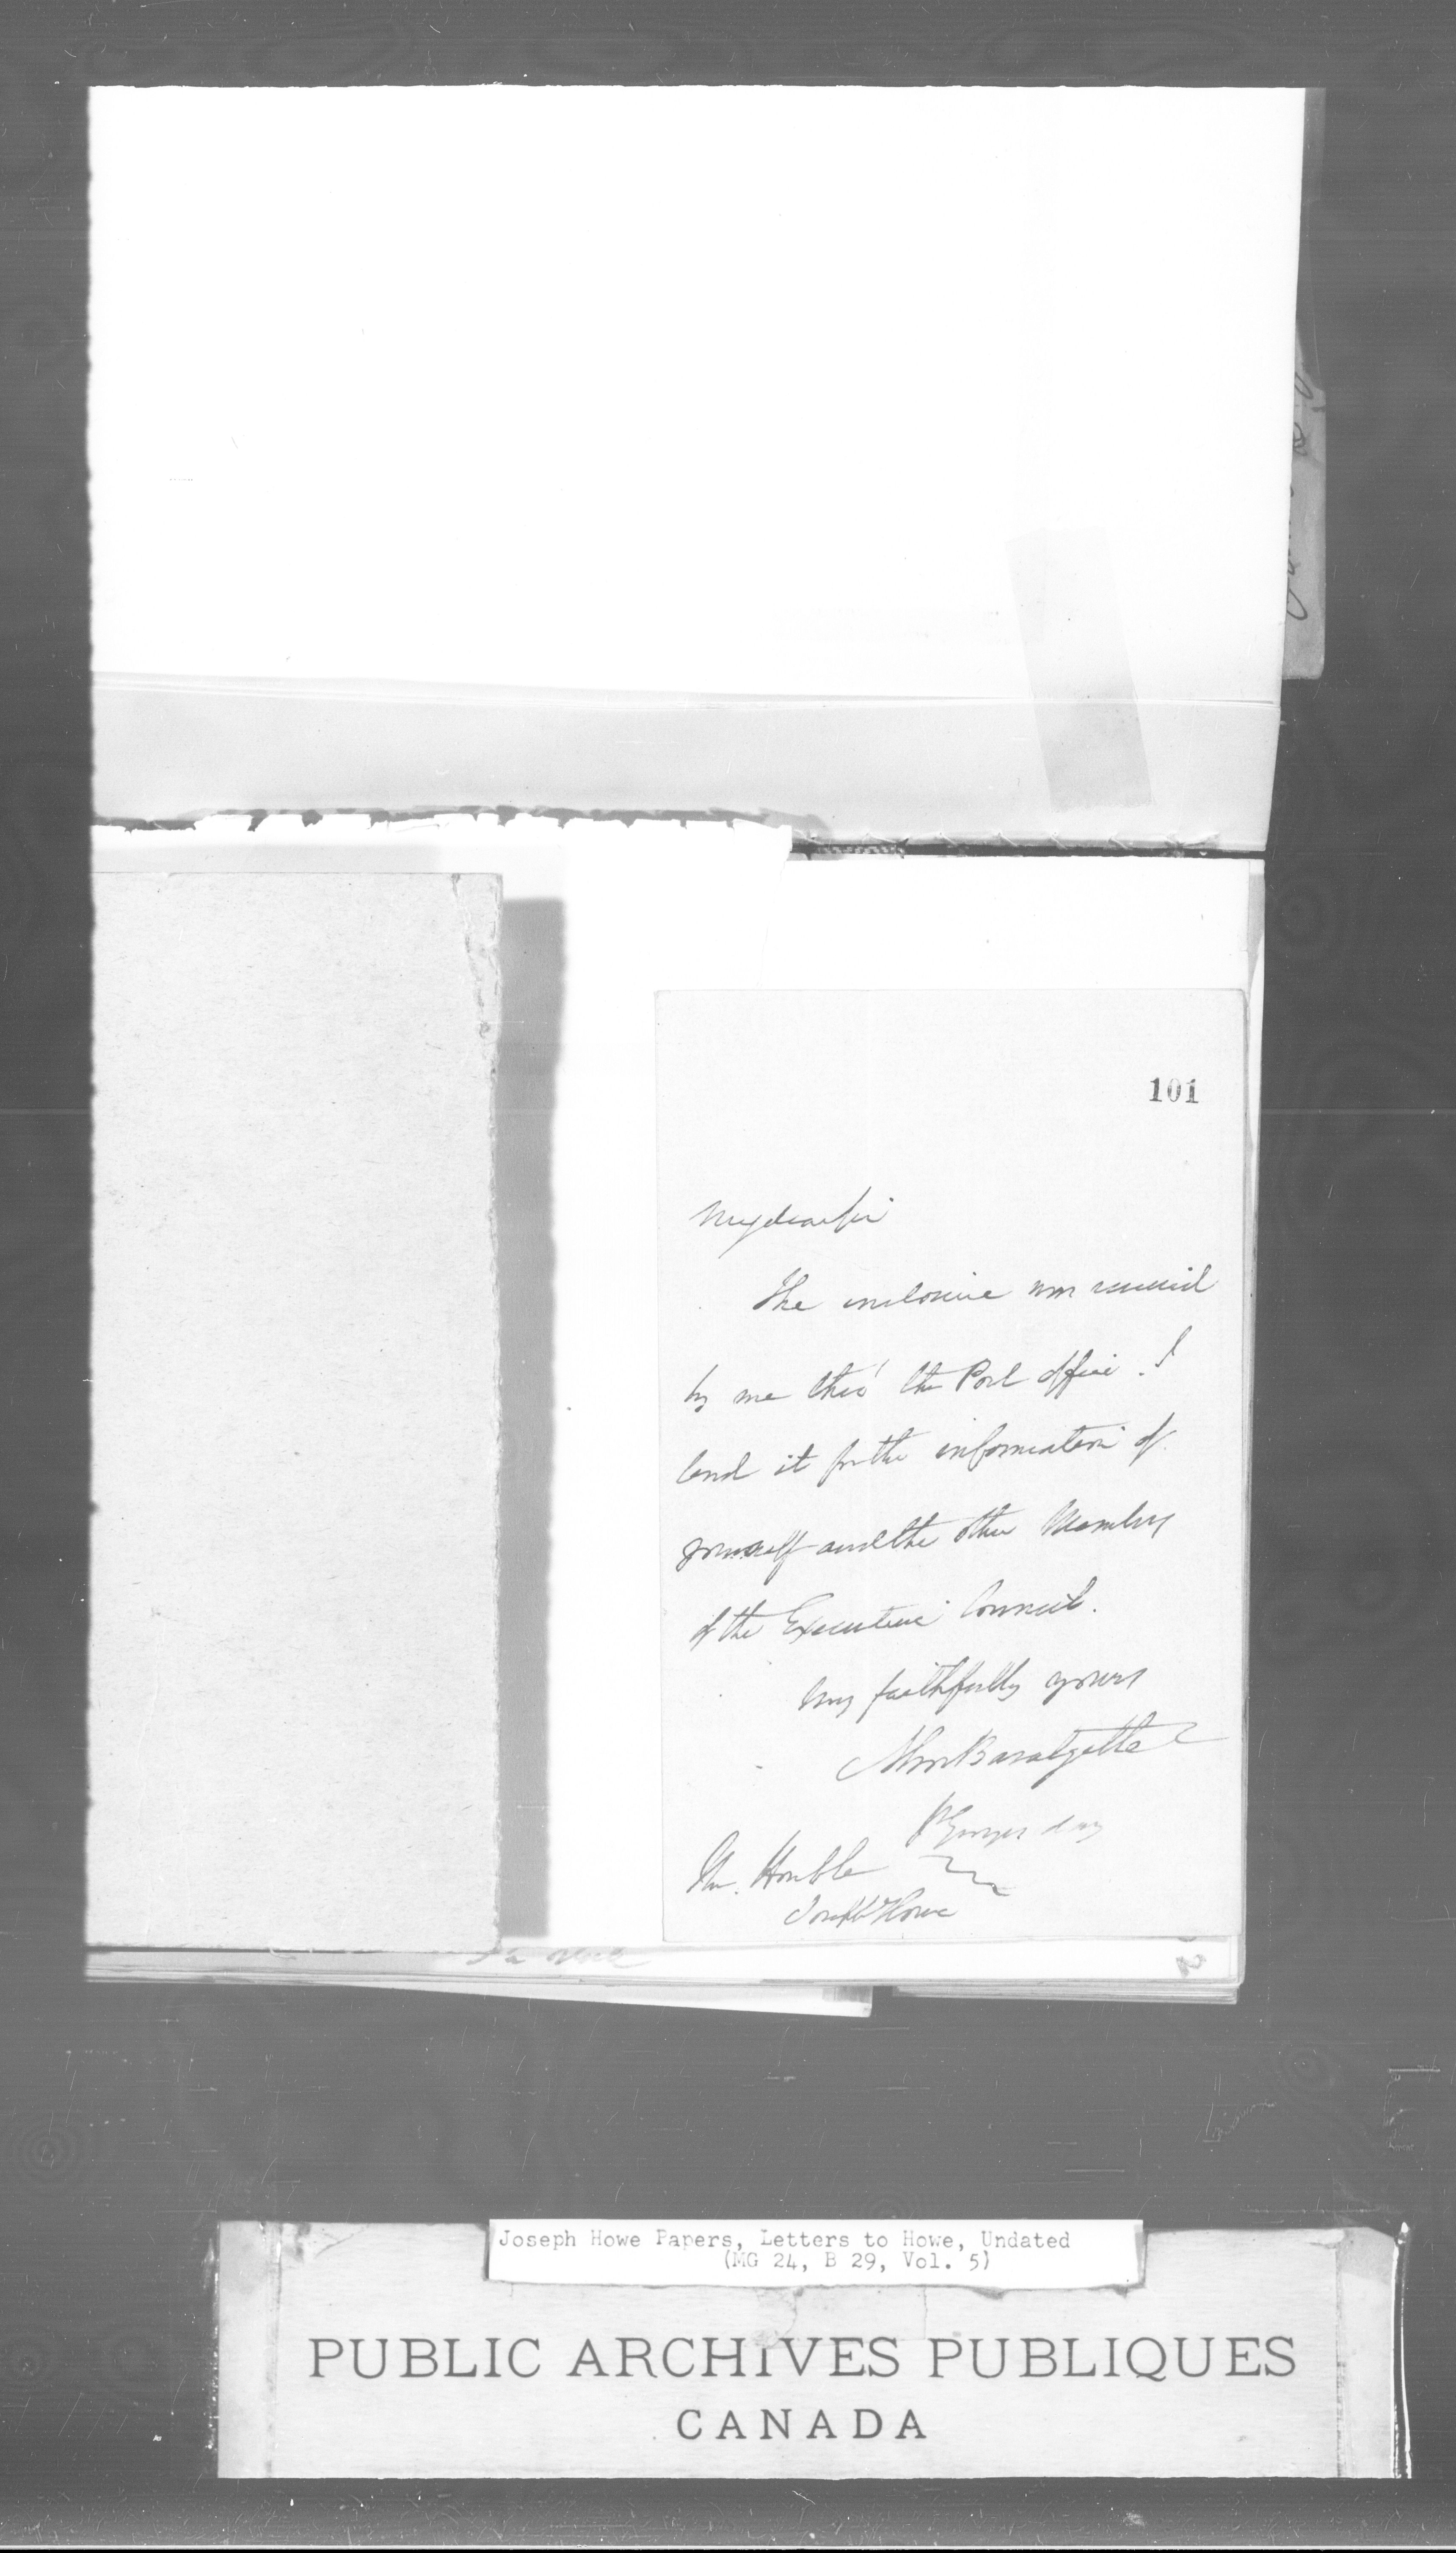 101
My dear Sir
The inclosure was received
by me thro' the Post Office. I
send it for the information of
yourself and the other Members
of the Executive Council.
Very faithfully yours
Jno Bazalgette
St Georges day
The Honble
Joseph Howe
Joseph Howe Papers, Letters to Howe, Undated
(MG 24, B 29, Vol. 5)
PUBLIC ARCHIVES PUBLIQUES
CANADA